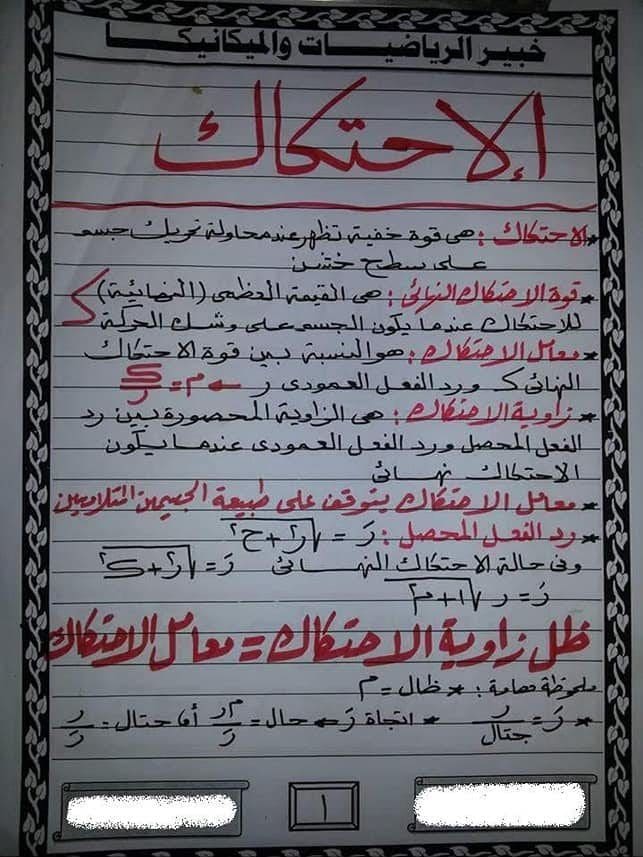 خبير الرياضيات والميكانيكا
الإحتكاك
* الاحتكاك : هى قوة خفية تظهر عند محاولة تحريك جسم
على سطح خشن
* قوة الاحتكاك النهائى : هى القيمة العظمى (النهائية)
للاحتكاك عندما يكون الجسم على وشك الحركة ک
* معامل الاحتكاك : هو النسبة بين قوة الاحتكاك
النهائى ک ورد الفعل العمودى ر ← م = ک/ر
* زاوية الاحتكاك : هى الزاوية المحصورة بين رد
الفعل المحصل ورد الفعل العمودى عندما يكون
الاحتكاك نهائى
* معامل الاحتكاك يتوقف على طبيعة الجسمين المتلامسين
* رد الفعل المحصل : رَ = √(ر٢ + ح٢)
وفى حالة الاحتكاك النهائى رَ = √(ر٢ + ک٢)
رَ = ر √(١ + م٢)
ظل زاوية الاحتكاك = معامل الاحتكاك
ملحوظة هامة : * ظال = م
* رَ = ر/جتال * اتجاة رَ ← حال = م ر/رَ أما حتال = ر/رَ
١